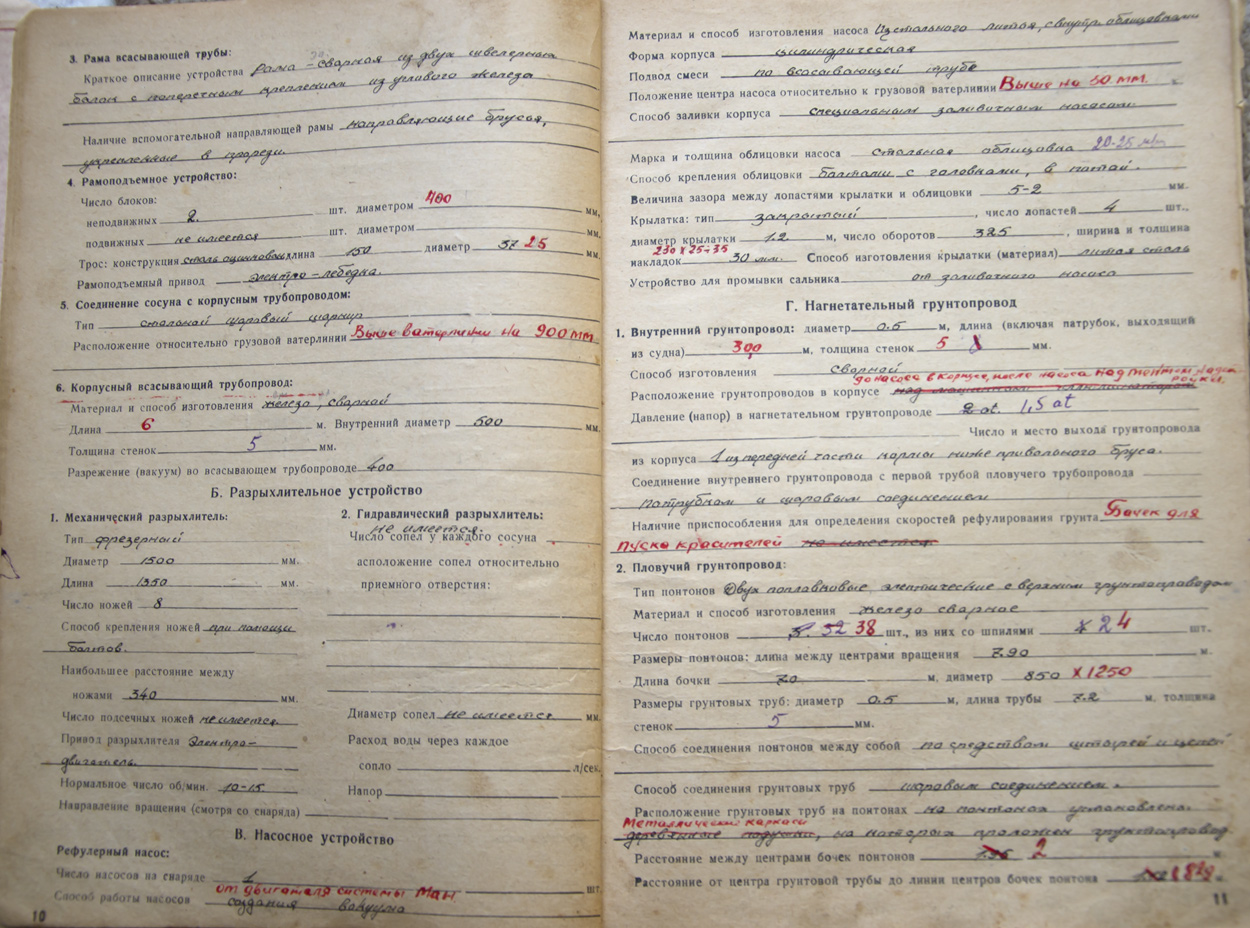 3. Рама всасывающей трубы:
Краткое описание устройства Рама – сварная из двух швелерных
балок с поперечным креплением из углового железа
Наличие вспомогательной направляющей рамы направляющие брусья,
укрепленные в прорези.
4. Рамоподъемное устройство:
Число блоков:
неподвижных 2. шт. диаметром 400 мм,
подвижных не имеется шт. диаметром мм.
Трос: конструкция сталь оцинкован длина 150 диаметр 37 25 мм.
Рамоподъемный привод электро-лебедка.
5. Соединение сосуна с корпусным трубопроводом:
Тип стальной шаровый шарнир
Расположение относительно грузовой ватерлинии Выше ватерлинии на 900 мм.
6. Корпусный всасывающий трубопровод:
Материал и способ изготовления железо, сварной
Длина 6 м. Внутренний диаметр 500 мм.
Толщина стенок 5 мм.
Разрежение (вакуум) во всасывающем трубопроводе 400
Б. Разрыхлительное устройство
1. Механический разрыхлитель:
Тип фрезерный
Диаметр 1500 мм.
Длина 1350 мм.
Число ножей 8
Способ крепления ножей при помощи
болтов.
Наибольшее расстояние между
ножами 340 мм.
Число подсечных ножей не имеется.
Привод разрыхлятеля Электро-
двигатель.
Нормальное число об/мин. 10-15
Направление вращенич (смотря со снаряда)
2. Гидравлический разрыхлитель:
не имеется.
Число сопел у каждого сосуна
асположение сопел относительно
приемного отверстия:
Диаметр сопел не имеется мм
Расход воды через каждое
сопло л/сек.
Напор
В. Насосное устройство
Рефулерный насос:
Число насосов на снаряде 1 шт.
от двигателя системы Ман
Способ работы насосов создания вакуума
10
Материал и способ изготовления насоса Из стального литья, с внутр. облицовками
Форма корпуса цилиндрическая
Подвод смеси по всасывающей трубе
Положение центра насоса относительно к грузовой ватерлинии Выше на 50 мм.
Способ заливки корпуса специальным заливочным насосом
Марка и толщина облицовки насоса стальная облицовка 20-25 мм
Способ крепления облицовки болтами с головками, в потай.
Величина зазора между лопастями крылатки и облицовки 5-2 мм.
Крылатка: тип закрытый, число лопастей 4 шт.,
диаметр крылатки 1.2 м, число оборотов 325, ширина и толщина
230 x 25-35
накладок 30 мм. Способ изготовления крылатки (материал) литая сталь
Устройство для промывки сальника от заливочного насоса
Г. Нагнетательный грунтопровод
1. Внутренний грунтопровод: диаметр 0.5 м, длина (включая патрубок, выходящий
из судна) 30,0 м, толщина стенок 5 мм.
Способ изготовления сварной
до насоса в корпусе, после насоса над тентом надст
ройки.
Расположение грунтопроводов в корпусе над машинным
Давление (напор) в нагнетательном грунтопроводе 2 at. 1,5 at
Число и место выхода грунтопровода
из корпуса 1 из передней части кормы ниже привального бруса.
Соединение внутреннего грунтопровода с первой трубой пловучего трубопровода
Патрубком и шаровым соединением
Наличие приспособления для определения скоростей рефулирования грунта Бачек для
пуска красителей не имеется
2. Пловучий грунтопровод:
Тип понтонов Двух поплавковые элептические с верхним грунтопроводом
Материал и способ изготовления железо сварное
Число понтонов 32 38 шт., из них со шпилями 24 шт.
Размеры понтонов: длина между центрами вращения 7.90 м.
Длина бочки 7.0 м, диаметр 850 х 1250
Размеры грунтовых труб: диаметр 0.5 м, длина трубы 7.2 м. толщина
стенок 5 мм.
Способ соединения понтонов между собой по средством штырей и цепей
Способ соединения грунтовых труб шаровым соединением.
Расположение грунтовых труб на понтонах на понтонах установлена.
Металлические каркасы
деревянные подушки, на которых проложен грунтопровод
Расстояние между центрами бочек понтонов 2
Расстояние от центра грунтовой трубы до линии центров бочек понтона
11